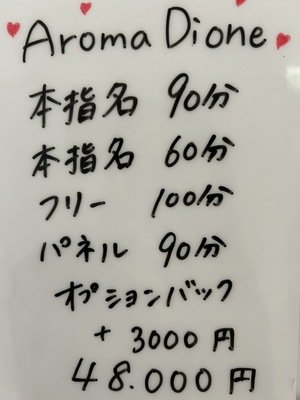 Aroma Dione
本指名 90分
本指名 60分
フリー 100分
パネル 90分
オプションバック
+ 3000円
48.000円